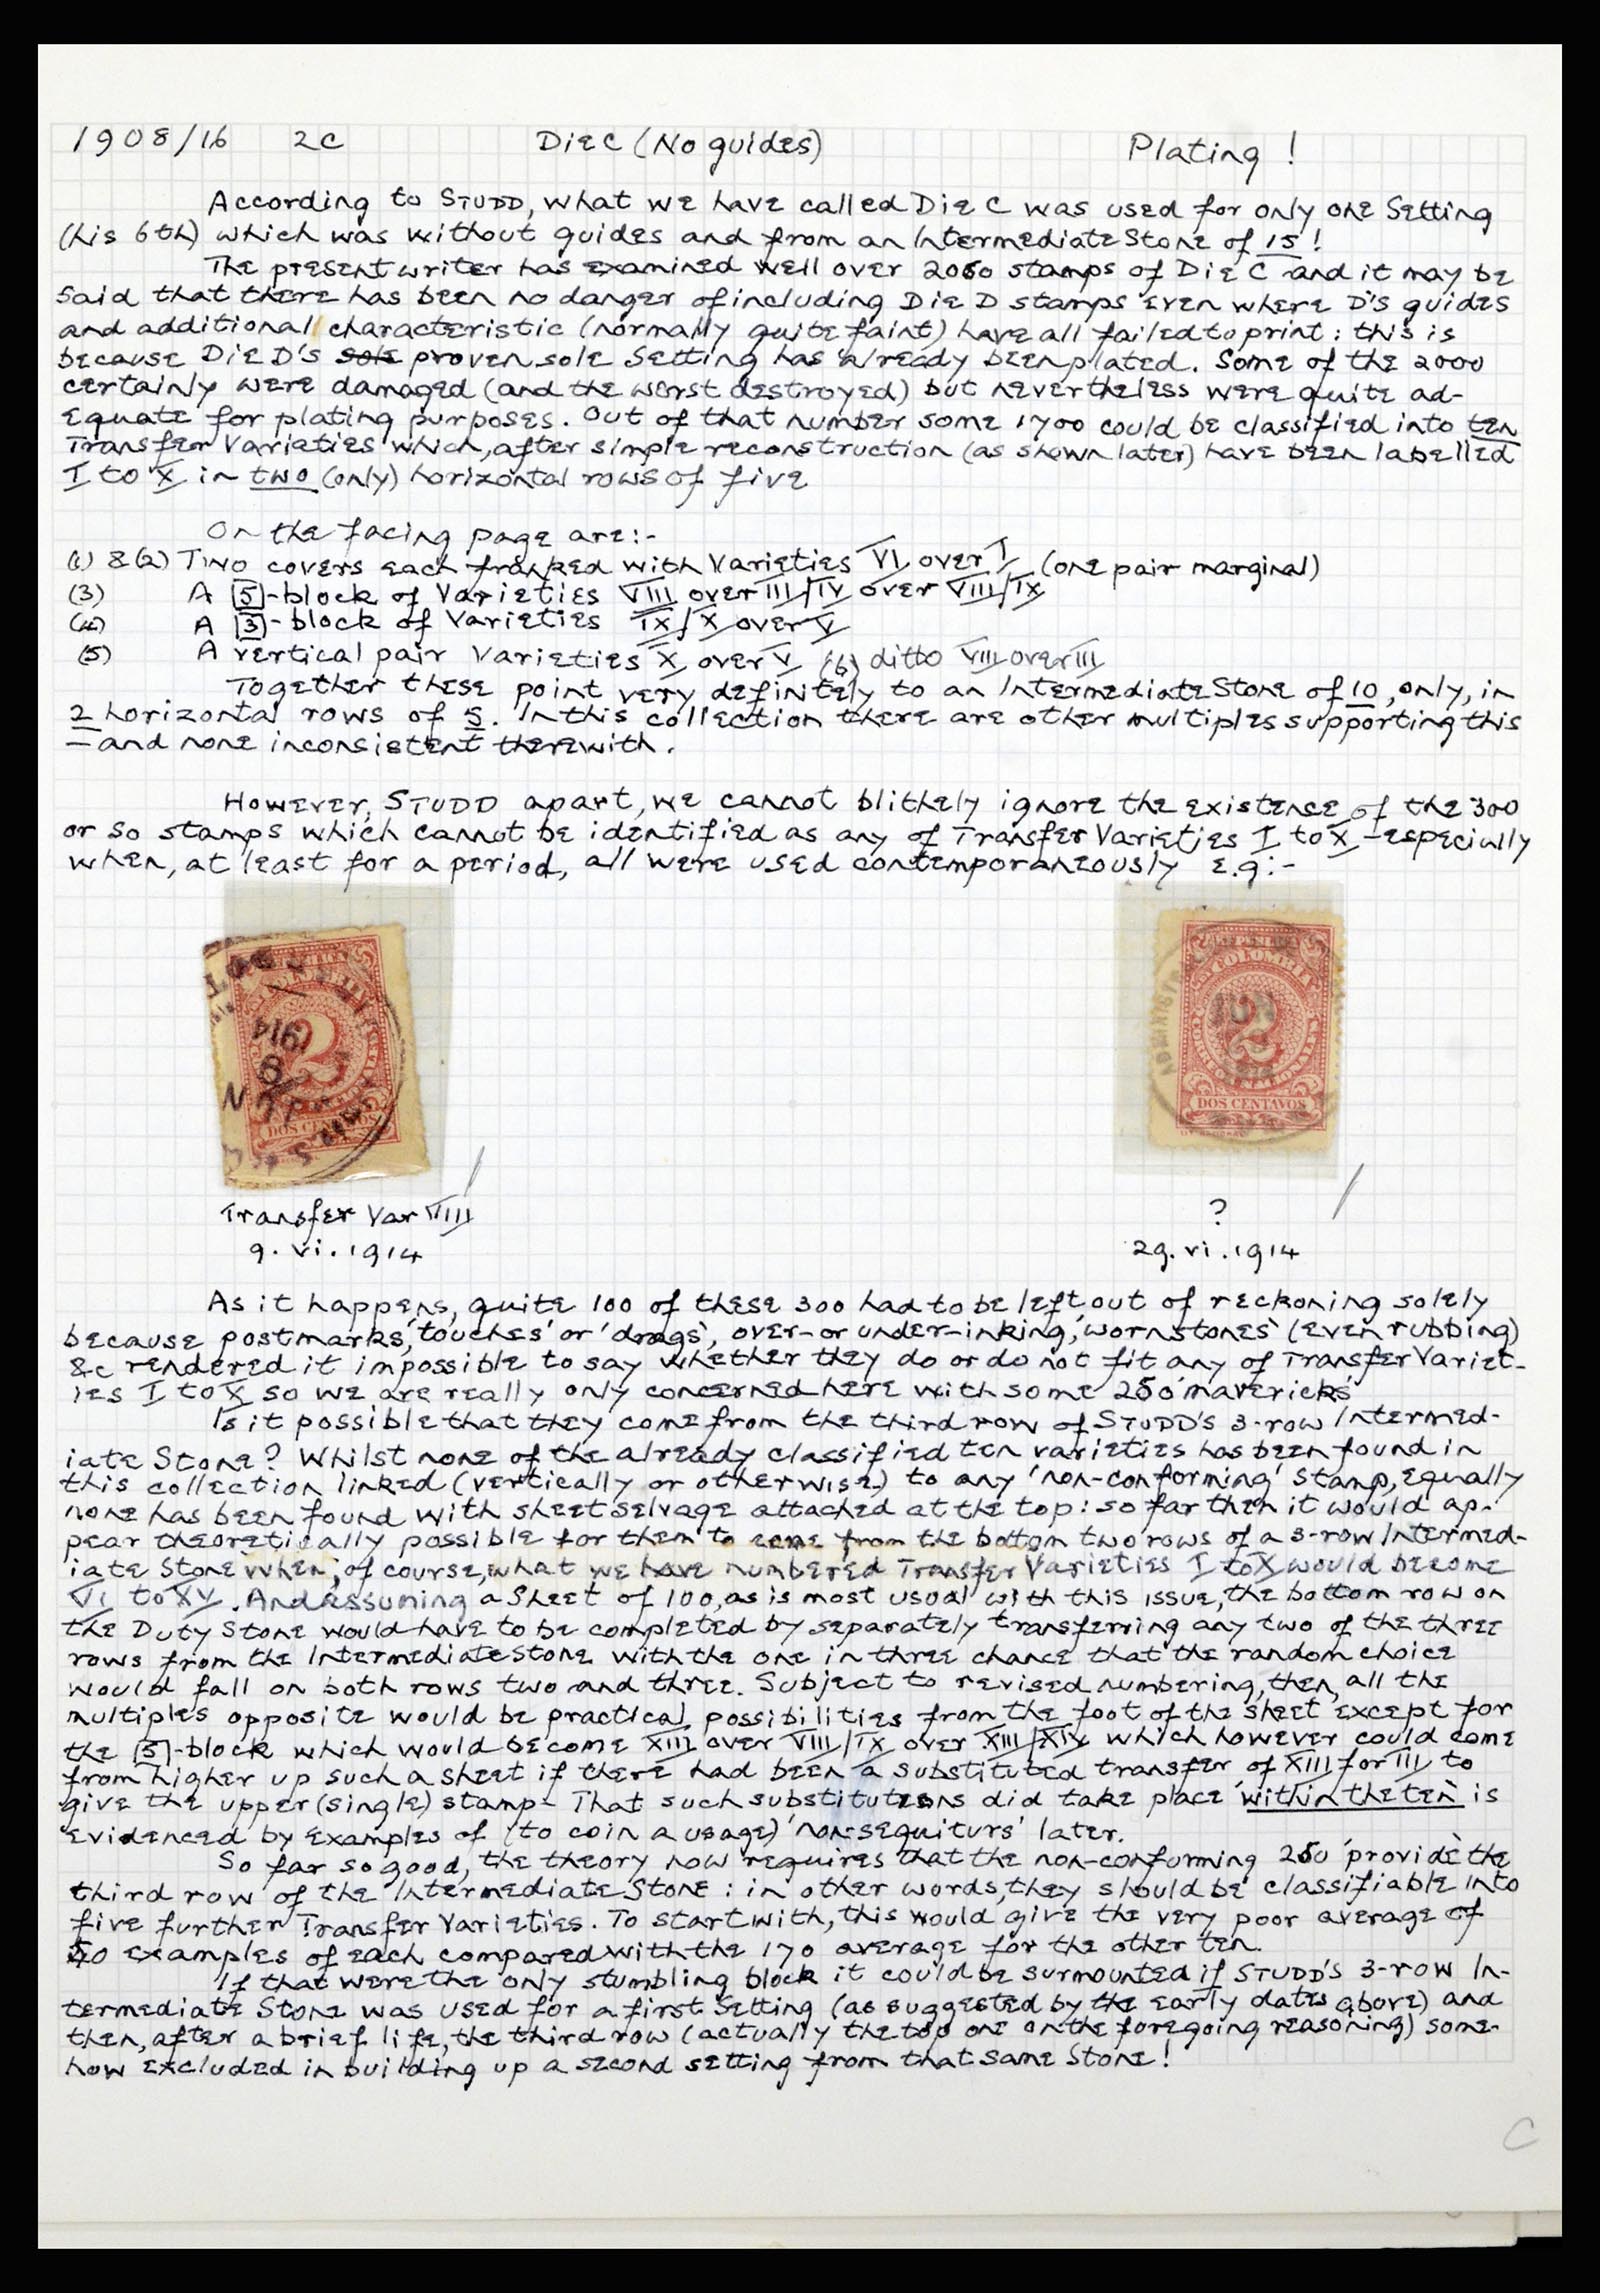 1908/16 2C Die C (No guides) Plating !
According to STUDD, what we have called Die C was used for only one Setting
(his 6th) which was without guides and from an Intermediate Stone of 15 !
The present writer has examined well over 2000 stamps of Die C and it may be
said that there has been no danger of including Die D stamps even where D's guides
and additional characteristic (normally quite faint) have all failed to print : this is
because Die D's sole proven sole Setting has already been plated. Some of the 2000
certainly were damaged (and the worst destroyed) but nevertheless were quite ad-
equate for plating purposes. Out of that number some 1700 could be classified into ten
Transfer Varieties which, after simple reconstruction (as shown later) have been labelled
I to X in two (only) horizontal rows of five
On the facing page are:-
(1) & (2) Two covers each franked with Varieties VI over I (one pair marginal)
(3) A 5-block of Varieties VIII over III/IV over VIII/IX
(4) A 3-block of Varieties IX/X over V
(5) A vertical pair Varieties X over V (6) ditto VIII over III
Together these point very definitely to an Intermediate Stone of 10, only, in
2 horizontal rows of 5. In this collection there are other multiples supporting this
— and none inconsistent therewith.
However, STUDD apart, we cannot blithely ignore the existence of the 300
or so stamps which cannot be identified as any of Transfer Varieties I to X - especially
when, at least for a period, all were used contemporaneously e.g:-
REPUBLICA
COLOMBIA
2
DOS CENTAVOS
1914
9
REPUBLICA
COLOMBIA
2
DOS CENTAVOS
Transfer Var VIII
9. vi. 1914
?
29. vi. 1914
As it happens, quite 100 of these 300 had to be left out of reckoning solely
because postmarks, 'touches' or 'drags', over- or under-inking, 'worn stones' (even rubbing)
&c rendered it impossible to say whether they do or do not fit any of Transfer Variet-
ies I to X so we are really only concerned here with some 250 'mavericks'
Is it possible that they come from the third row of STUDD'S 3-row Intermed-
iate Stone? Whilst none of the already classified ten varieties has been found in
this collection linked (vertically or otherwise) to any 'non-conforming' stamp, equally
none has been found with sheet selvage attached at the top : so far then it would ap-
pear theoretically possible for them to come from the bottom two rows of a 3-row Intermed-
iate Stone when, of course, what we have numbered Transfer Varieties I to X would become
VI to XV. And assuming a Sheet of 100, as is most usual with this issue, the bottom row on
the Duty Stone would have to be completed by separately transferring any two of the three
rows from the Intermediate Stone with the one in three chance that the random choice
would fall on both rows two and three. Subject to revised numbering, then, all the
multiples opposite would be practical possibilities from the foot of the sheet except for
the 5-block which would become XIII over VIII/IX over XIII/XIV which however could come
from higher up such a sheet if there had been a substituted transfer of XIII for III to
give the upper (single) stamp - That such substitutions did take place 'within the ten' is
evidenced by examples of (to coin a usage) 'non-sequiturs' later.
So far so good, the theory now requires that the non-conforming 250 'provide' the
third row of the Intermediate Stone : in other words, they should be classifiable into
five further Transfer Varieties. To start with, this would give the very poor average of
50 examples of each compared with the 170 average for the other ten.
If that were the only stumbling block it could be surmounted if STUDD'S 3-row In-
termediate Stone was used for a first Setting (as suggested by the early dates above) and
then, after a brief life, the third row (actually the top one on the foregoing reasoning) some-
how excluded in building up a second setting from that same Stone !
C